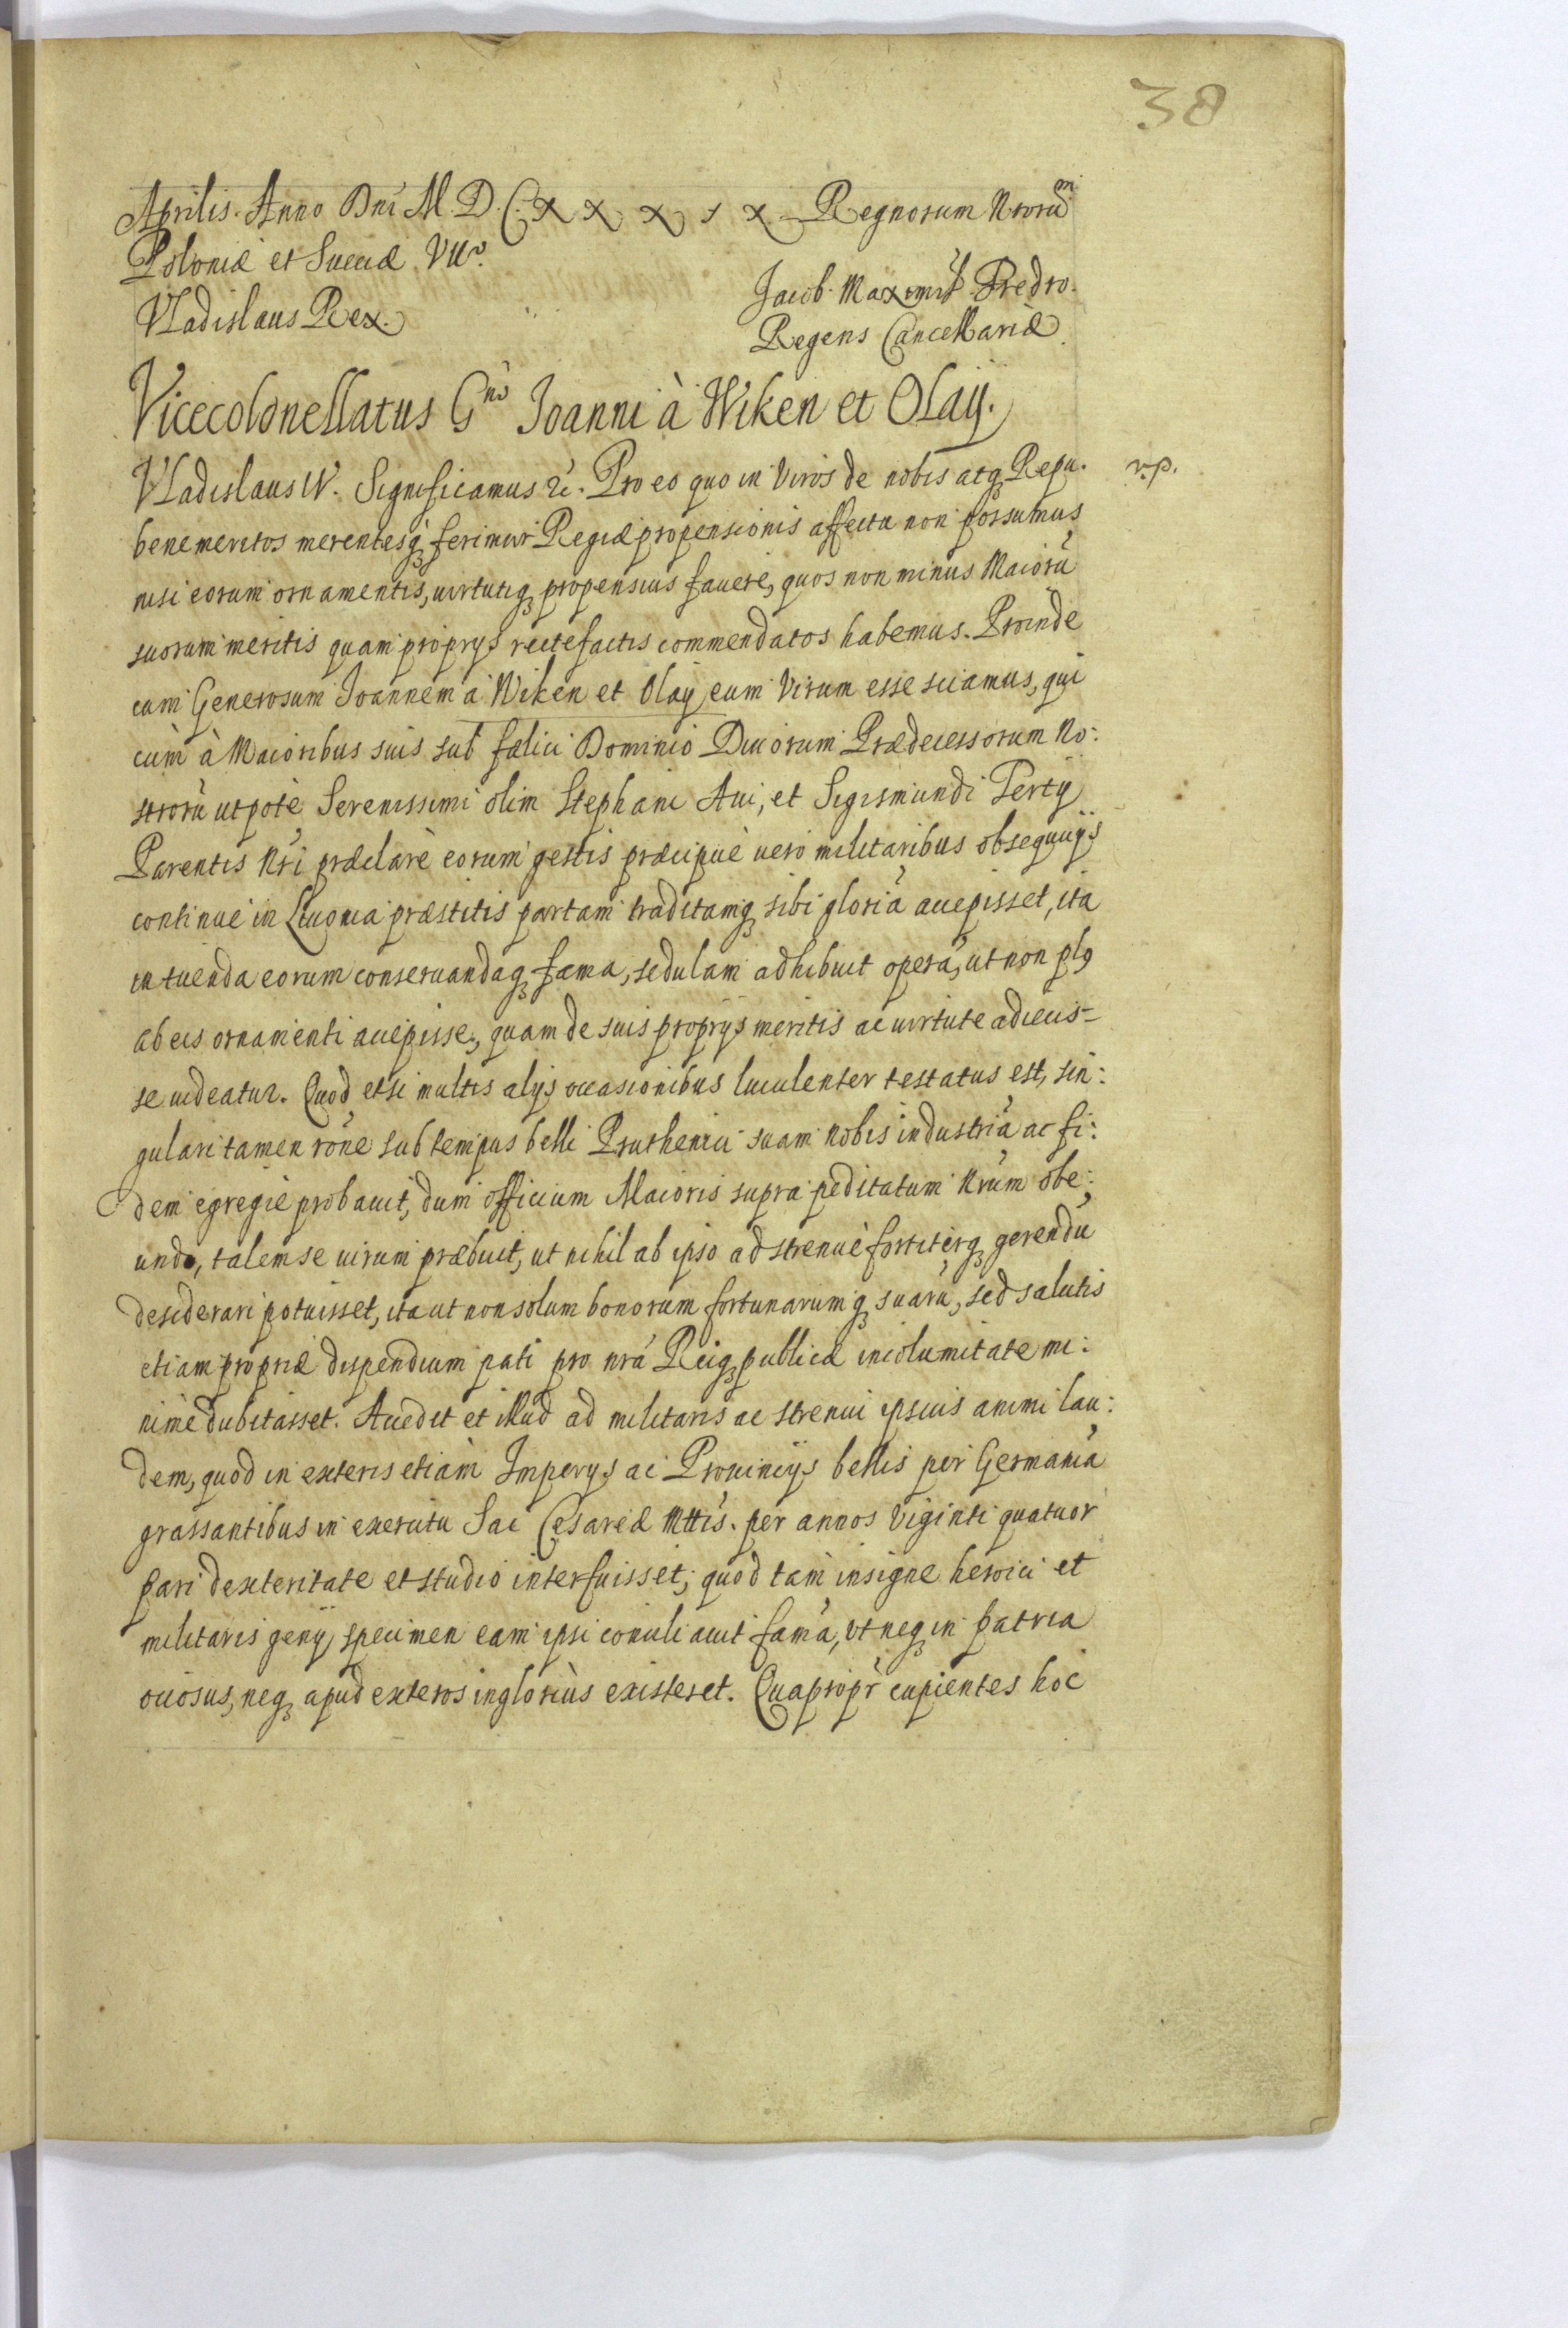 38
Aprilis. Anno Dni M. D. C. X X X I X. Regnorum Nrorum
Poloniæ et Sueciæ VIIo.
Vladislaus Rex.
Jacob. Maximil. Fredro.
Regens Cancellariæ.
Vicecolonellatus Gno Joanni à Wiken et Olaij.
Vladislaus IV. Significamus &c. Pro eo quo in Viros de nobis atq Repu. v.p.
benemeritos merentesq ferimur Regiæ propensionis affectu non possumus
nisi eorum ornamentis, uirtutiq propensius fauere, quos non minus Maiorũ
suorum meritis quam proprijs rectefactis commendatos habemus. Proinde
cum Generosum Joannem à Wiken et Olaij eum Virum esse sciamus, qui
cùm à Maioribus suis sub fælici Dominio Diuorum Prædecessorum No:
strorũ utpotè Serenissimi olim Stephani Aui, et Sigismundi Tertij
Parentis Nri præclarè eorum gestis præcipuè uerò militaribus obsequijs
continuè in Liuonia præstitis partam traditamq sibi gloriã accepisset, ita
in tuenda eorum conseruandaq fama, sedulam adhibuit operã, ut non plg
ab eis ornamenti accepisse, quam de suis proprijs meritis ac uirtute adiecis-
se uideatur. Quod etsi multis alijs occasionibus luculenter testatus est, sin:
gulari tamen rõne sub tempus belli Pruthenici suam nobis industriã ac fi:
dem egregiè probauit, dum officium Maioris supra peditatum Nrum obe:
undo, talem se uirum præbuit, ut nihil ab ipso ad strenuè fortiterq gerendũ
desiderari potuisset, ita ut non solum bonorum fortunarumq suarũ, sed salutis
etiam propriæ dispendium pati pro nrã Reiq publicæ incolumitate mi:
nimè dubitasset. Accedit et illud ad militaris ac strenui ipsius animi lau:
dem, quod in exteris etiàm Imperijs ac Prouincijs bellis per Germaniã
grassantibus in exercitu Sac Cesareæ Mttis. per annos Viginti quatuor
pari dexteritate et studio interfuisset; quod tam insigne heroici et
militaris genij specimen eam ipsi conciliauit famã, ut neq in patria
ociosus, neq apud exteros inglorius existeret. Quapropr cupientes hoc